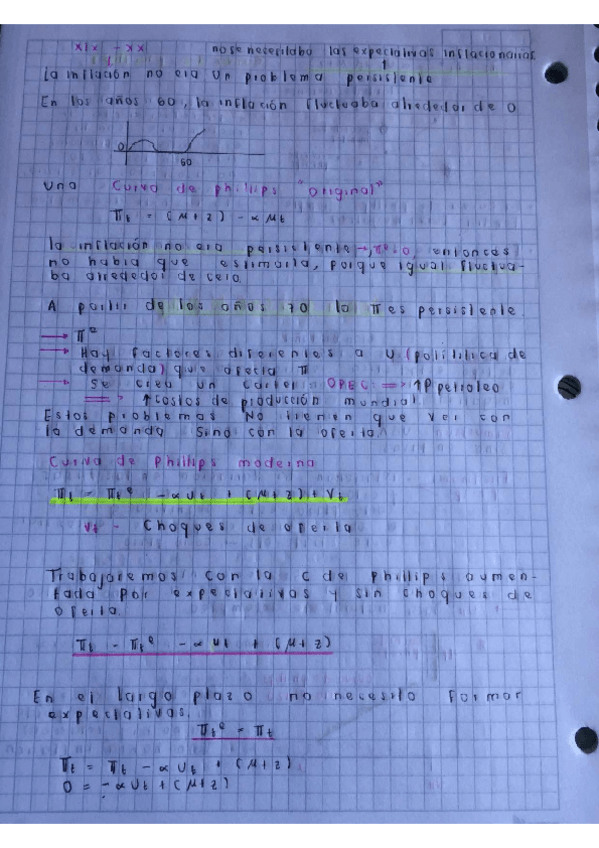 XIX - XX
no se necesitaba las expectativas inflacionarias
La inflación no era un problema persistente
En los años 60, la inflación fluctuaba alrededor de 0
0
60
una Curva de phillips "original"
πt = (μ+z) - αμt
la inflación no era persistente entonces
no había que estimarla, porque igual fluctua-
ba alrededor de cero.
A partir de los años 70 la π es persistente.
→ πe
→ Hay factores diferentes a U (polítitica de
demanda) que afecta π
→ Se crea un cartel: OPEC ⇒ ↑P petroleo
⇒ ↑costos de producción mundial
Estos problemas No tienen que ver con
la demanda sino con la oferta.
Curva de Phillips moderna
πt - πte - αUt + (μ+z) + Vt
Vt - Choques de oferta
Trabajaremos con la C de Phillips aumen-
tada por expectativas y sin choques de
oferta.
πt - πte - αUt + (μ+z)
En el largo plazo no necesito formar
expectativas.
πte = πt
πt = πt - αUt + (μ+z)
0 = -αUt + (μ+z)